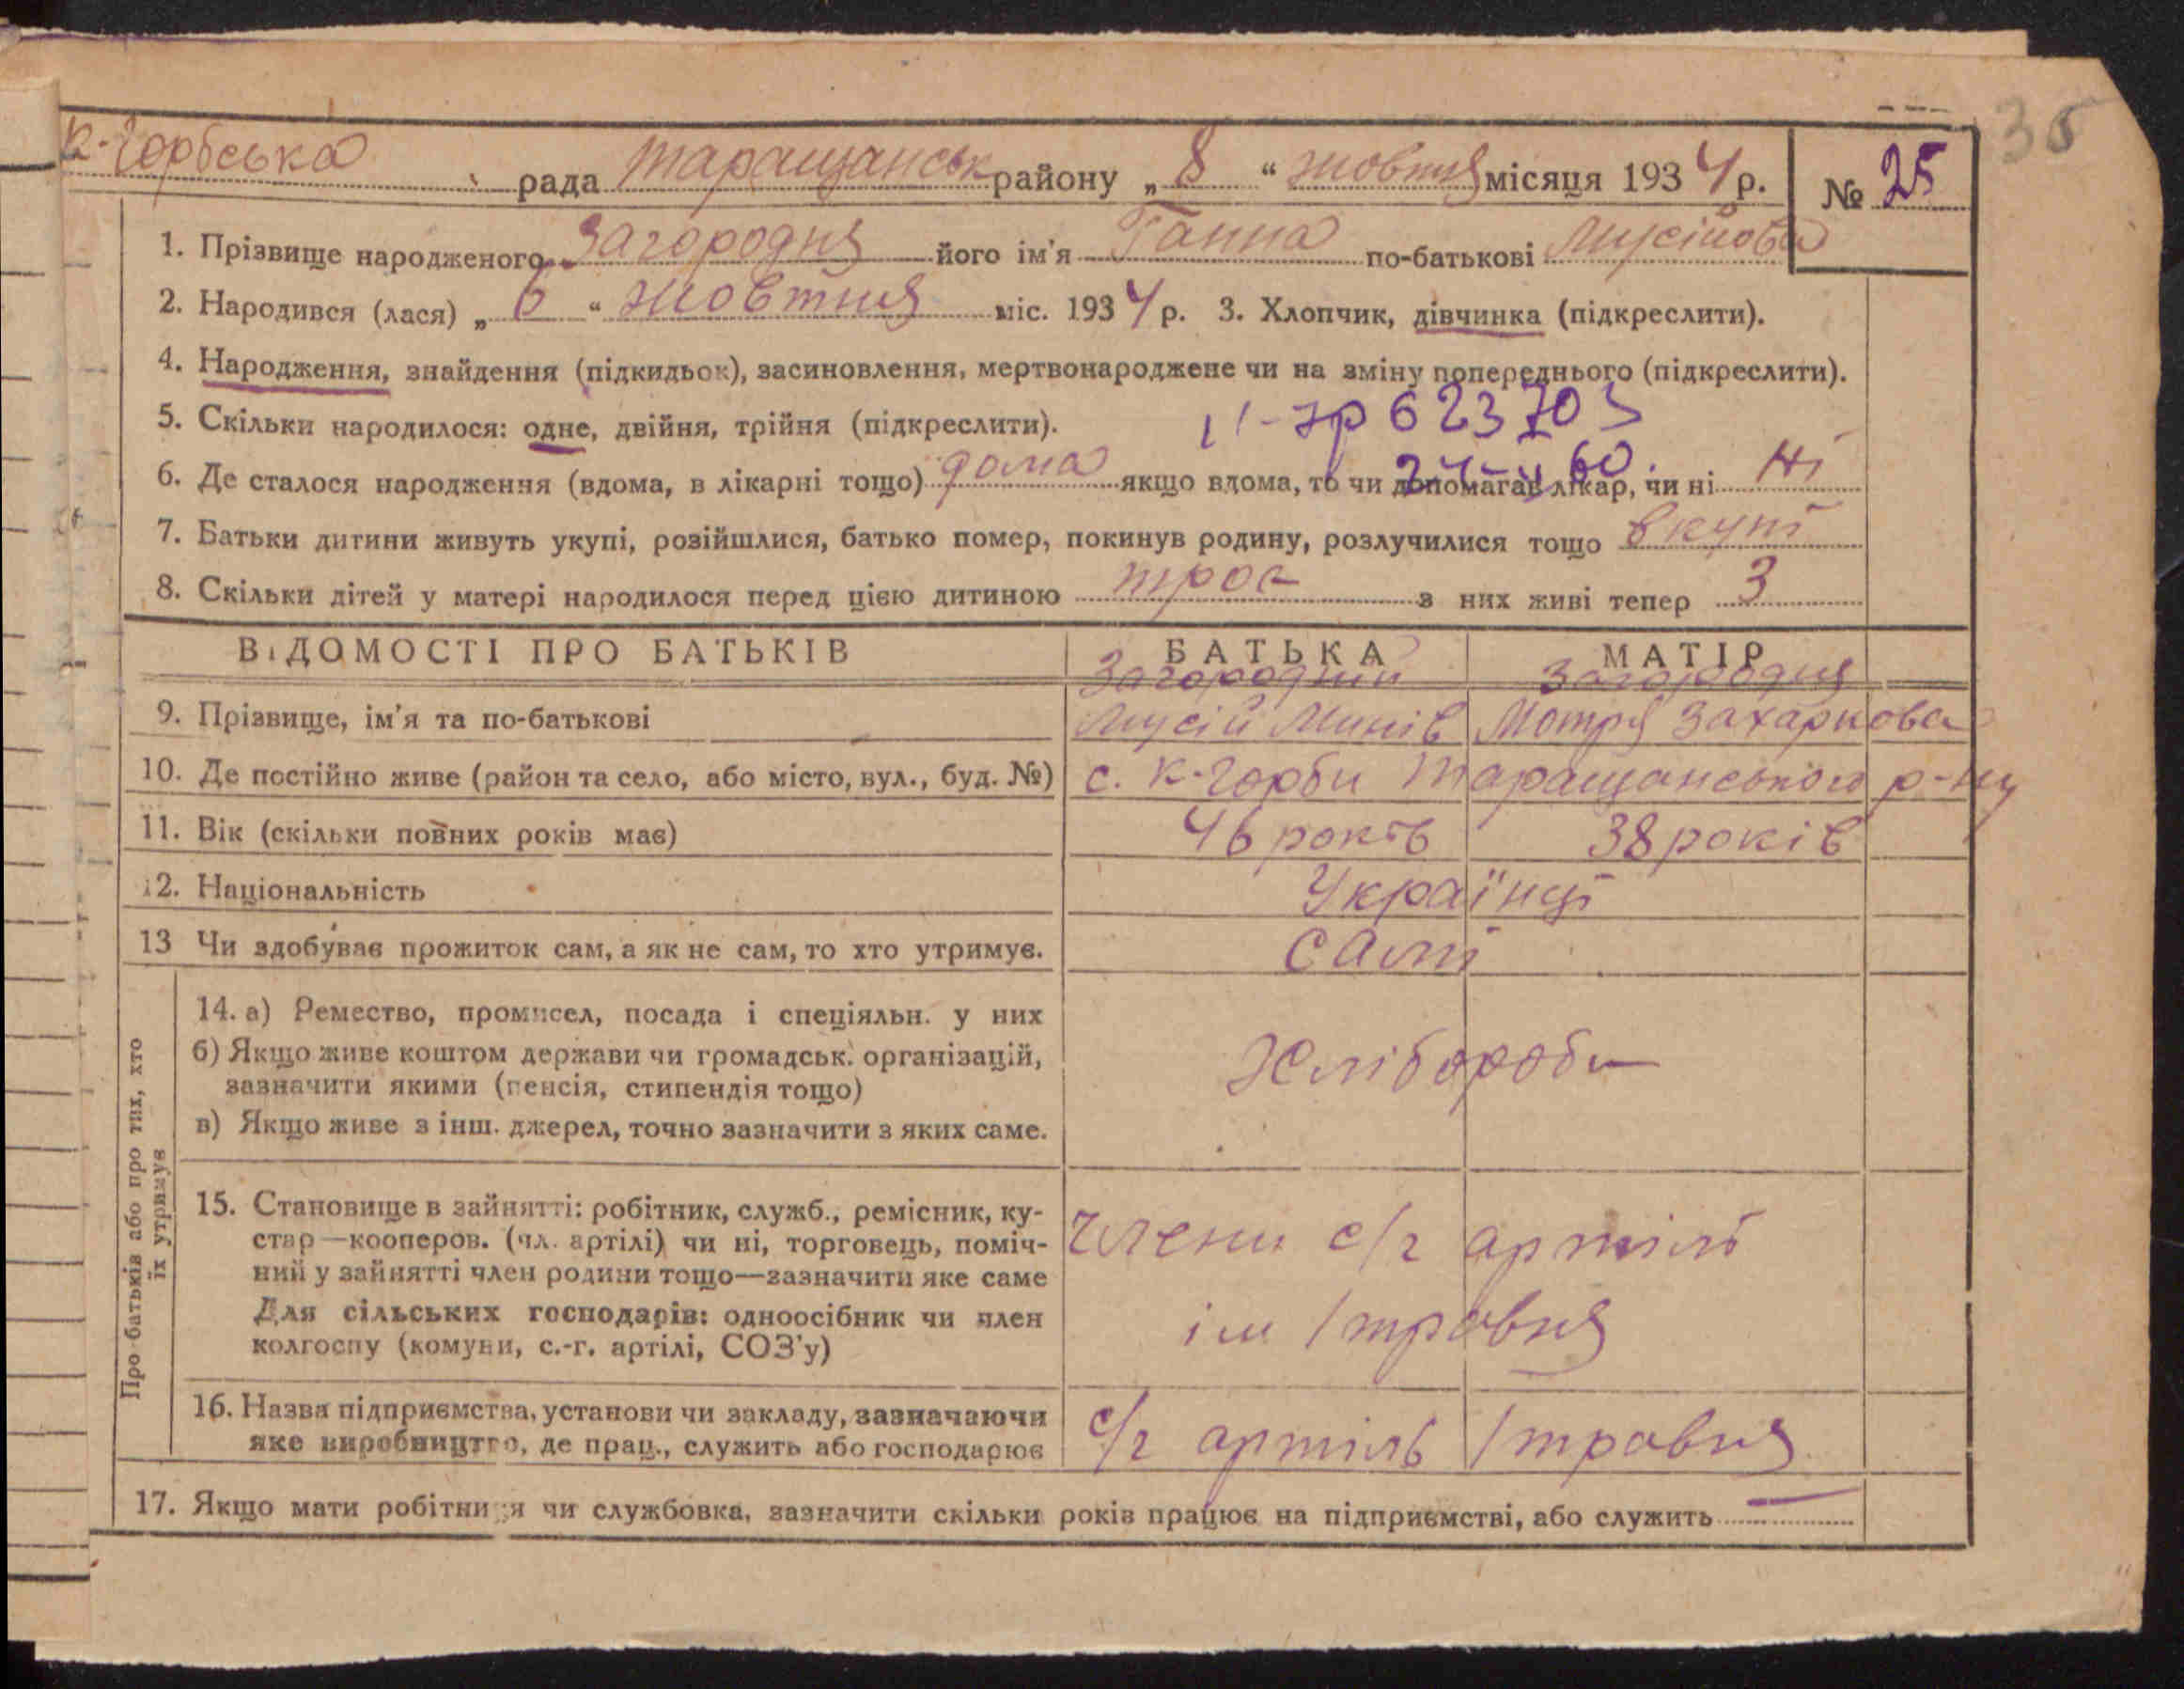 35
К-Горбська рада Таращанськ району „ 8 “ жовтня місяця 1934 р. № 25
1. Прізвище народженого Загородня його ім'я Ганна по-батькові Мусійова
2. Народився (лася) „ 6 “ жовтня міс. 1934 р. 3. Хлопчик, дівчинка (підкреслити).
4. Народження, знайдення (підкидьок), засиновлення, мертвонароджене чи на зміну попереднього (підкреслити).
5. Скільки народилося: одне, двійня, трійня (підкреслити).
6. Де сталося народження (вдома, в лікарні тощо) дома якщо вдома, то чи допомагав лікар, чи ні Ні
7. Батьки дитини живуть укупі, розійшлися, батько помер, покинув родину, розлучилися тощо вкупі
8. Скільки дітей у матері народилося перед цією дитиною троє з них живі тепер 3
ВІДОМОСТІ ПРО БАТЬКІВ БАТЬКА МАТІР
Загородній Загородня
9. Прізвище, ім'я та по-батькові Мусій Минів Мотря Захаркова
10. Де постійно живе (район та село, або місто, вул., буд. №) с. К-Горби Таращанського р-ну
11. Вік (скільки повних років має) 46 років 38 років
12. Національність Українці
13 Чи здобуває прожиток сам, а як не сам, то хто утримує. самі
Про батьків або про тих, хто
їх утримує
14. а) Ремество, промисел, посада і спеціяльн. у них
б) Якщо живе коштом держави чи громадськ. організацій,
зазначити якими (пенсія, стипендія тощо)
Хлібороби
в) Якщо живе з інш. джерел, точно зазначити з яких саме.
15. Становище в зайнятті: робітник, служб., ремісник, ку-
стар—кооперов. (чл. артілі) чи ні, торговець, поміч-
ний у зайнятті член родини тощо—зазначити яке саме
Для сільських господарів: одноосібник чи член
колгоспу (комуни, с.-г. артілі, СОЗ'у)
члени с/г артілі
ім 1 травня
16. Назва підприємства, установи чи закладу, зазначаючи
яке виробництво, де прац., служить або господарює
с/г артіль 1 травня
17. Якщо мати робітниця чи службовка, зазначити скільки років працює на підприємстві, або служить —